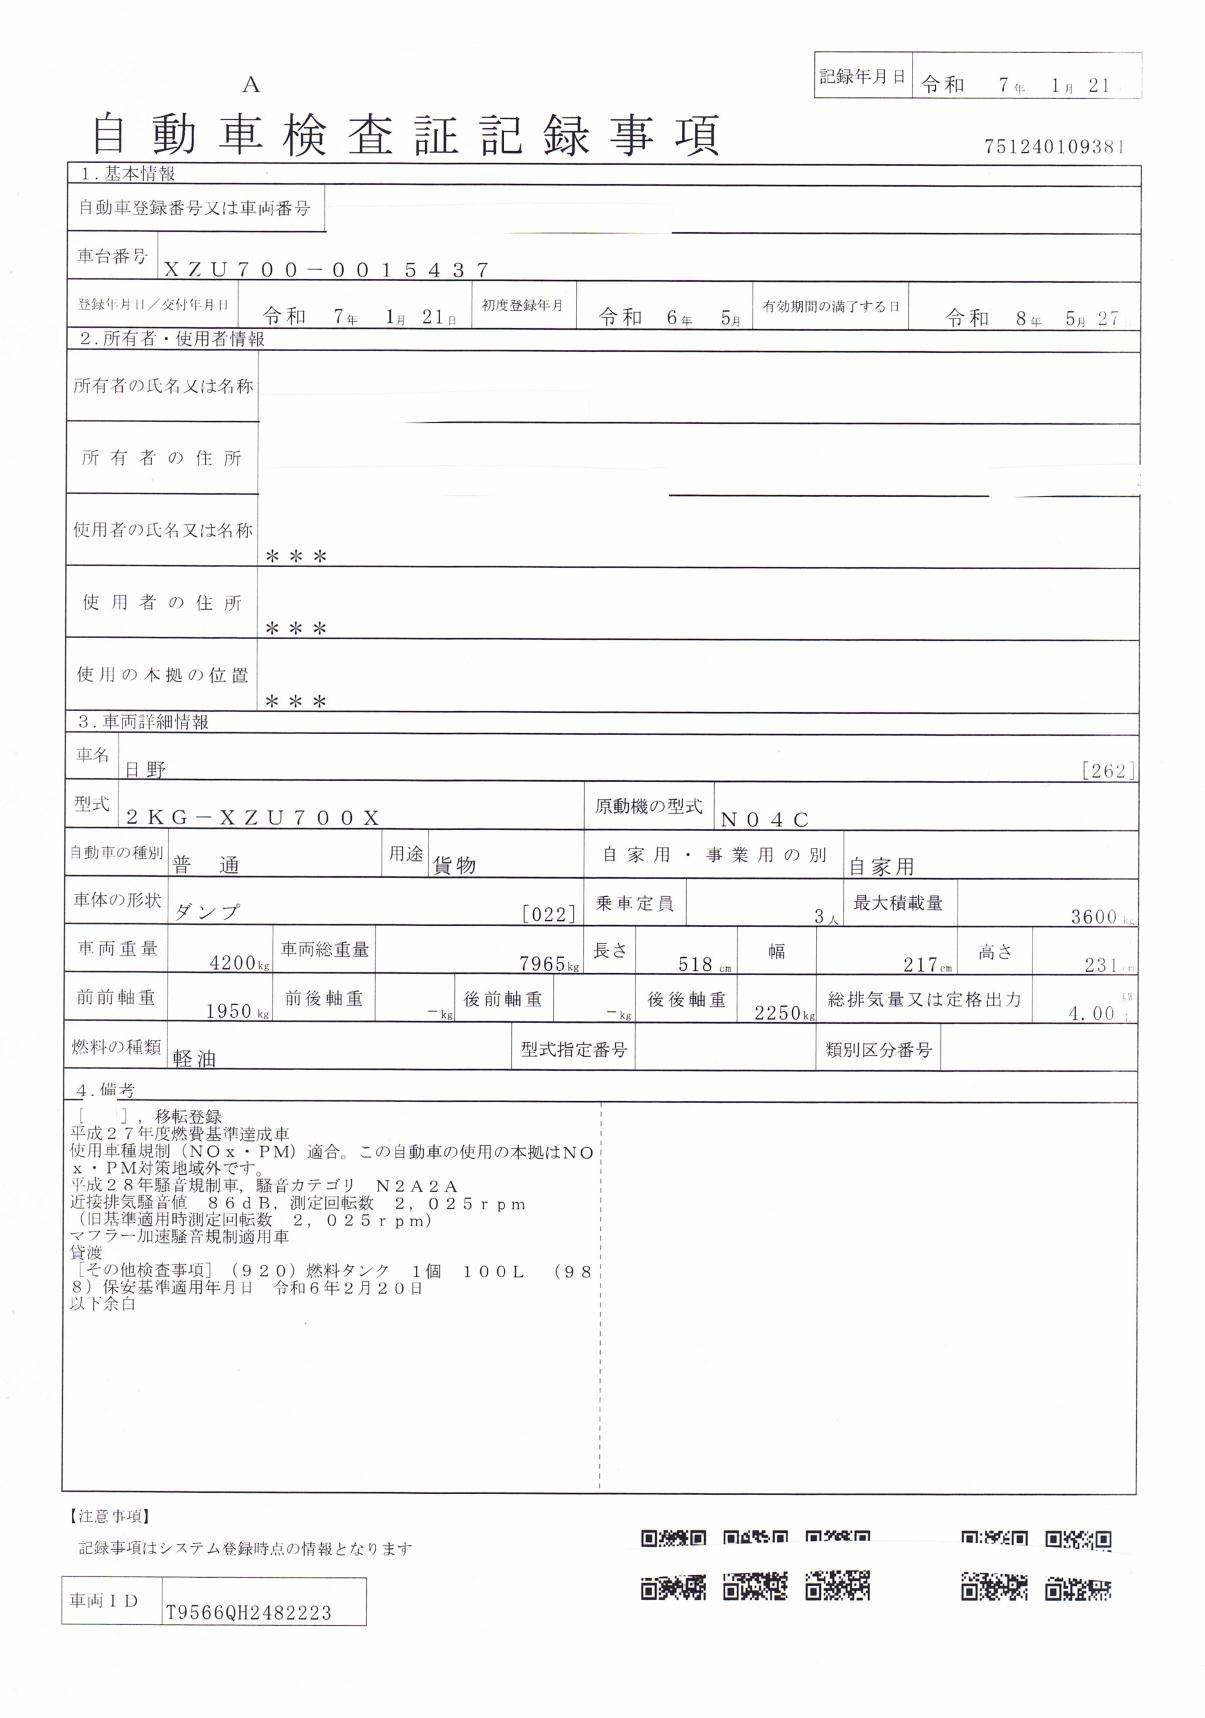 A
記録年月日 令和 7年 1月 21
自動車検査証記録事項
751240109381
1.基本情報
自動車登録番号又は車両番号
車台番号 XZU700-0015437
登録年月日/交付年月日 令和 7年 1月 21日 初度登録年月 令和 6年 5月 有効期間の満了する日 令和 8年 5月 27
2.所有者・使用者情報
所有者の氏名又は名称
所有者の住所
使用者の氏名又は名称 ***
使用者の住所 ***
使用の本拠の位置 ***
3.車両詳細情報
車名 日野 [262]
型式 2KG-XZU700X 原動機の型式 N04C
自動車の種別 普 通 用途 貨物 自家用・事業用の別 自家用
車体の形状 ダンプ [022] 乗車定員 3人 最大積載量 3600kg
車両重量 4200kg 車両総重量 7965kg 長さ 518cm 幅 217cm 高さ 231cm
前前軸重 1950kg 前後軸重 -kg 後前軸重 -kg 後後軸重 2250kg 総排気量又は定格出力 4.00 kW
燃料の種類 軽油 型式指定番号 類別区分番号
4.備考
[ ],移転登録
平成27年度燃費基準達成車
使用車種規制(NOx・PM)適合。この自動車の使用の本拠はNO
x・PM対策地域外です。
平成28年騒音規制車,騒音カテゴリ N2A2A
近接排気騒音値 86dB,測定回転数 2,025rpm
(旧基準適用時測定回転数 2,025rpm)
マフラー加速騒音規制適用車
貸渡
[その他検査事項](920)燃料タンク 1個 100L (98
8)保安基準適用年月日 令和6年2月20日
以下余白
【注意事項】
記録事項はシステム登録時点の情報となります
車両ID T9566QH2482223